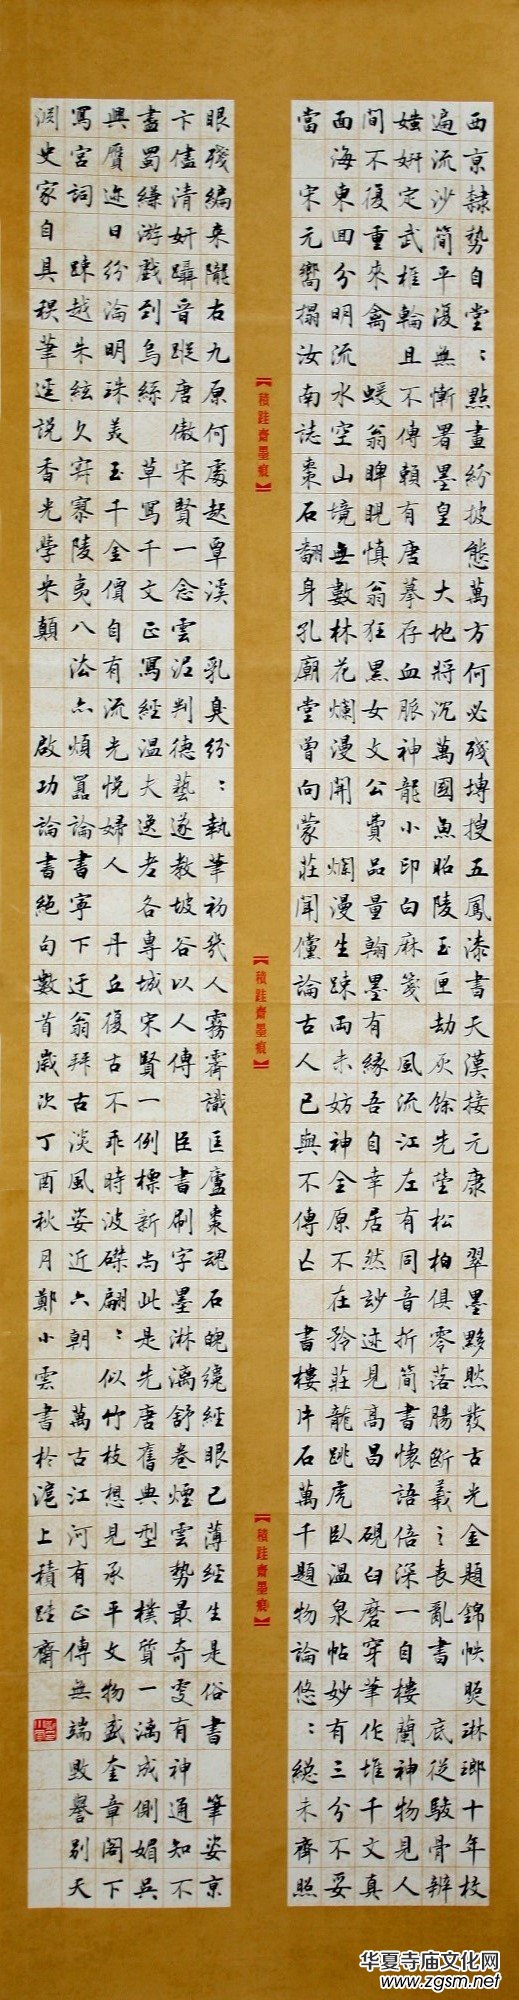 西京隸勢自堂〻點畫紛披態萬方何必殘塼搜五鳳漆書天漢接元康 翠墨黟然發古光金題錦帙照琳瑯十年校
遍流沙簡平復無慚署墨皇 大地將沉萬國魚昭陵玉匣劫灰餘先塋松柏俱零落腸斷羲之喪亂書 底從駿骨辨
媸妍定武椎輪且不傳賴有唐摹存血脈神龍小印白麻箋 風流江左有同音折簡書懷語倍深一自樓蘭神物見人
間不復重來禽 蝯翁睥睨慎翁狂黑女文公費品量翰墨有緣吾自幸居然妙迹見高昌 硯臼磨穿筆作堆千文真
面海東回分明流水空山境無數林花爛漫開 爛漫生疎兩未妨神全原不在矜莊龍跳虎臥溫泉帖妙有三分不妥
當 宋元嚮搨汝南誌棗石翻身孔廟堂曾向蒙莊聞儻論古人已與不傳亡 書樓片石萬千題物論悠〻總未齊照
【積跬齋墨痕】
【積跬齋墨痕】
【積跬齋墨痕】
眼殘編來隴右九原何處起覃溪 乳臭紛〻執筆初幾人霧霽識匡廬棗魂石魄纔經眼已薄經生是俗書 筆姿京
卞儘清妍躡晉蹤唐傲宋賢一念雲泥判德藝遂教坡谷以人傳 臣書刷字墨淋漓舒卷煙雲勢最奇更有神通知不
盡蜀縑游戲到烏絲 草寫千文正寫經溫夫逸老各專城宋賢一例標新尚此是先唐舊典型 樸質一漓成側媚吳
興贗迹日紛淪明珠美玉千金價自有流光悅婦人 丹丘復古不乖時波磔翩〻似竹枝想見承平文物盛奎章閣下
寫宮詞 疎越朱絃久寂寥陵夷八法亦煩囂論書寧下迂翁拜古淡風姿近六朝 萬古江河有正傳無端毀譽別天
淵史家自具秋筆逕說香光學米顛 啟功論書絕句數首歲次丁酉秋月鄭小雲書於滬上積跬齋
华夏寺庙文化网
www.zgsm.net